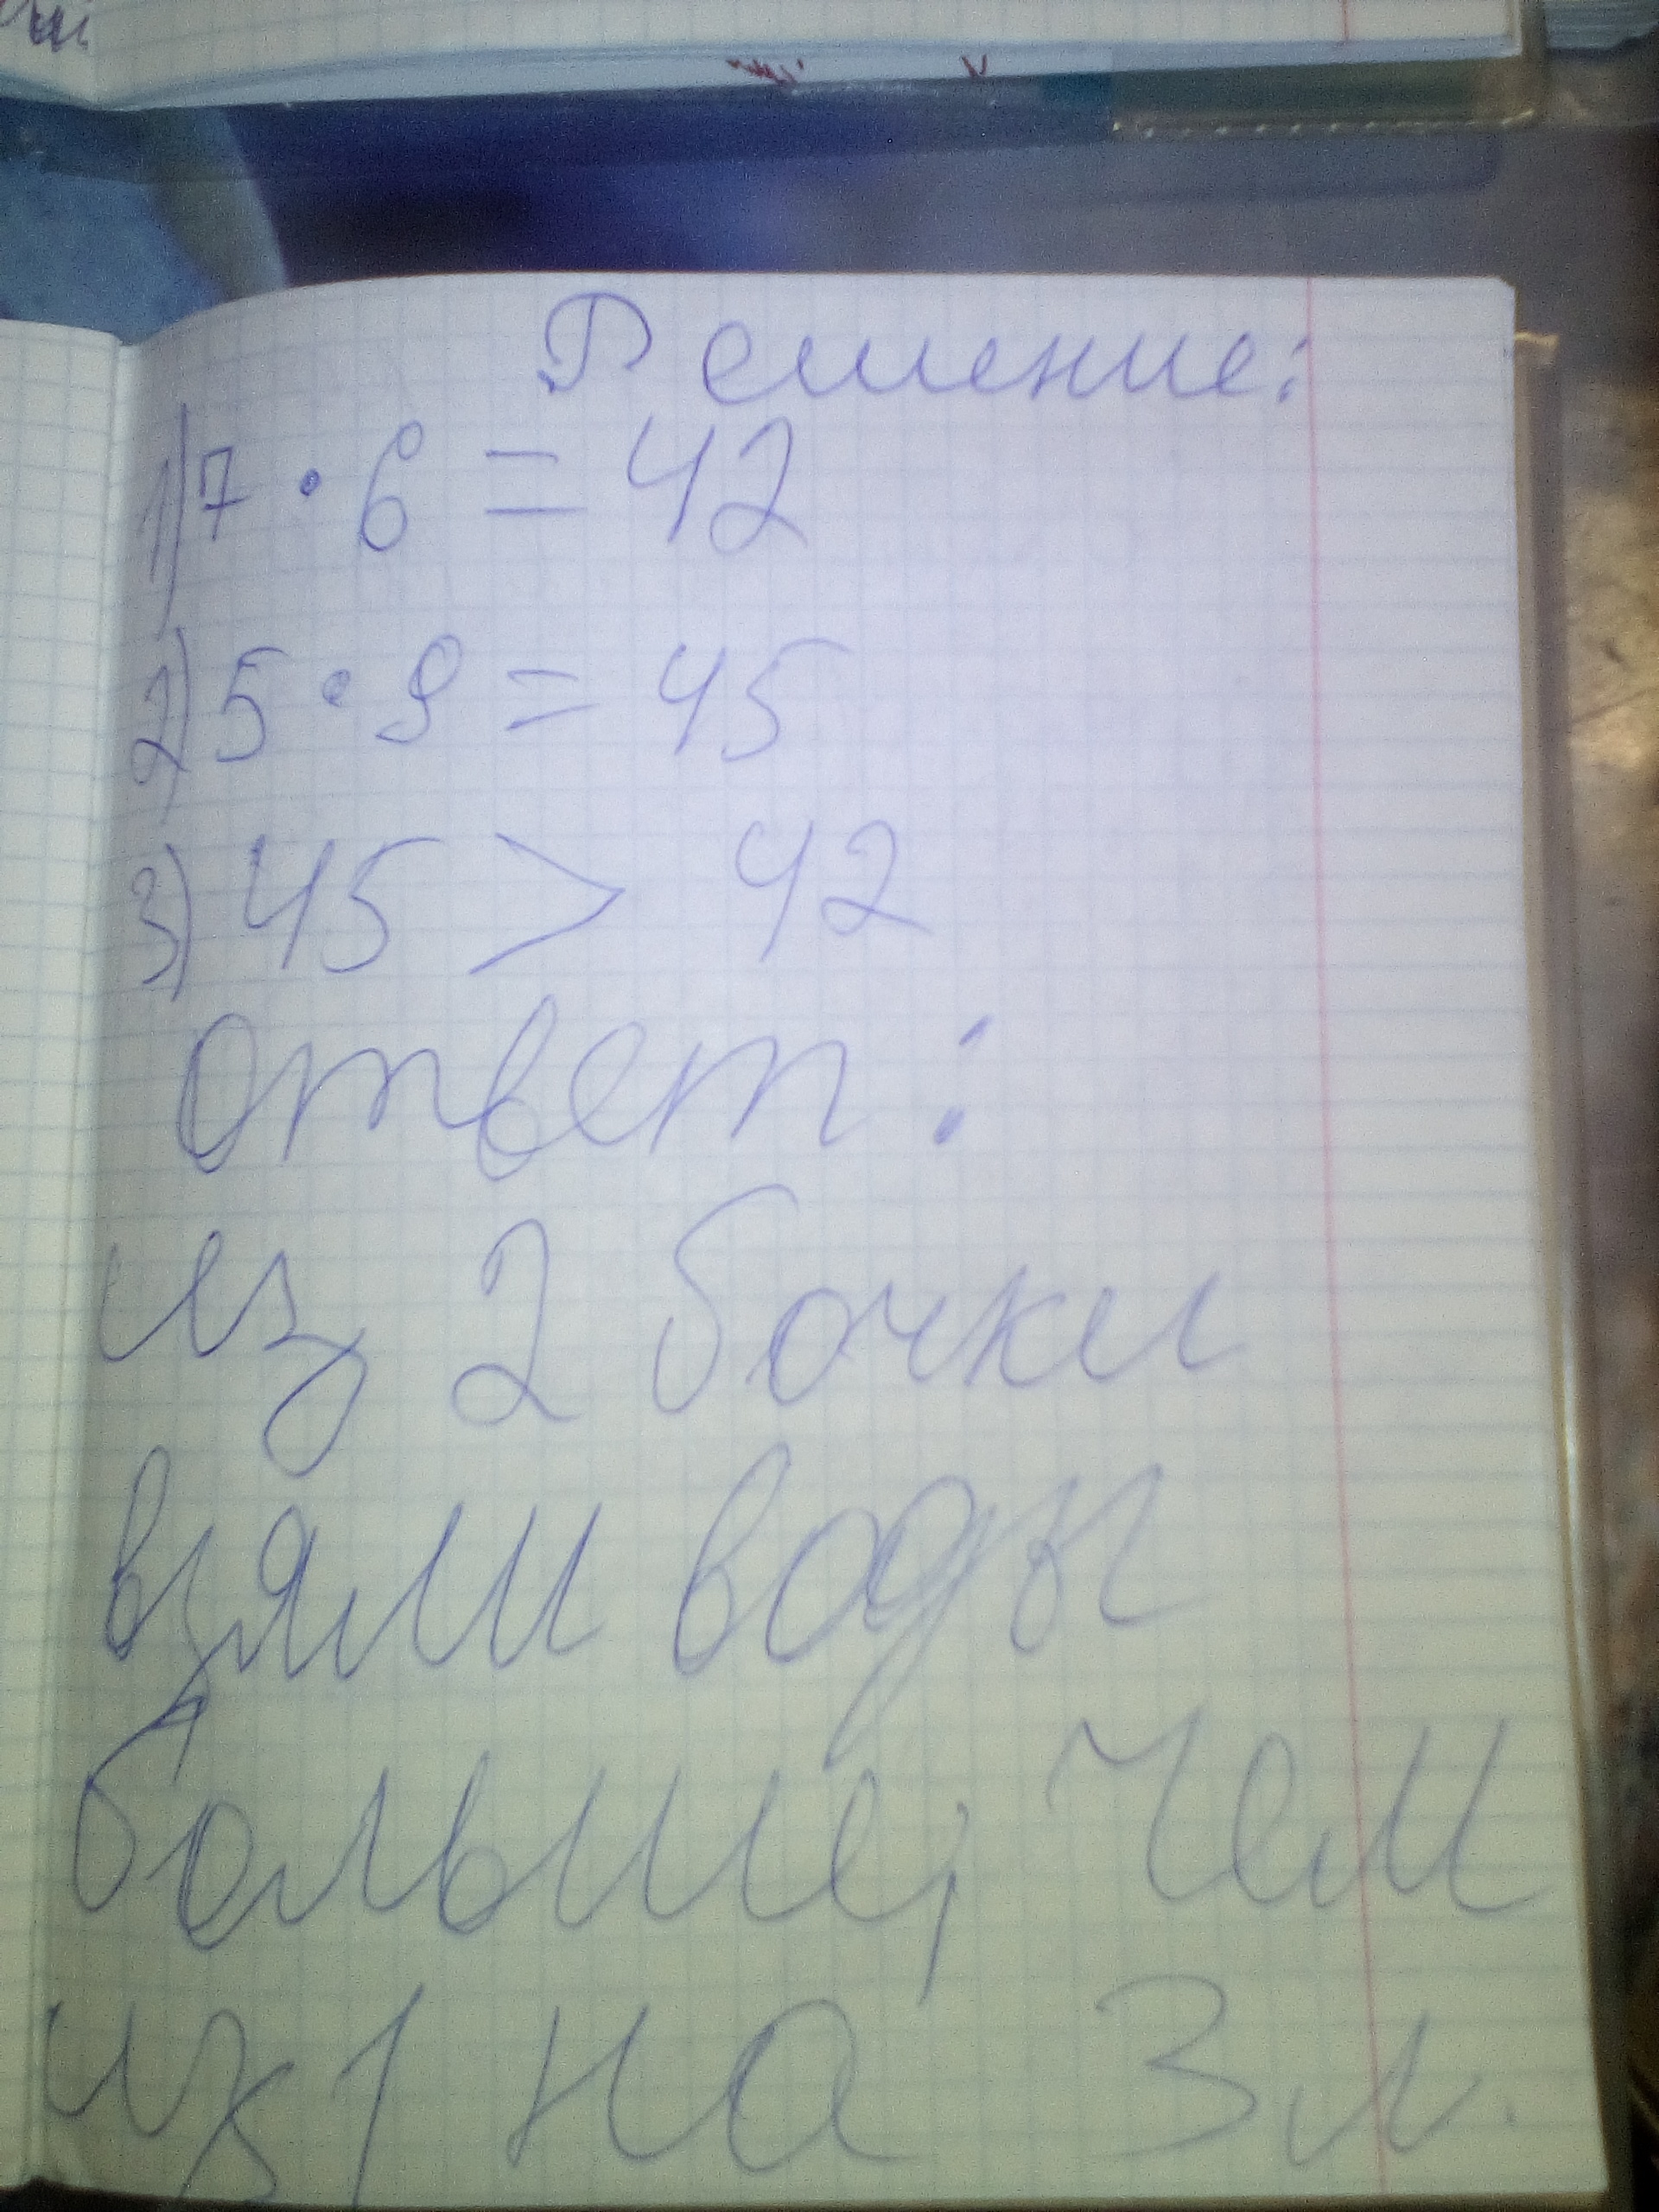 Решение:
1) 7 · 6 = 42
2) 5 · 9 = 45
3) 45 > 42
ответ:
из 2 бочки
взяли воды
больше, чем
из 1 на 3 л.